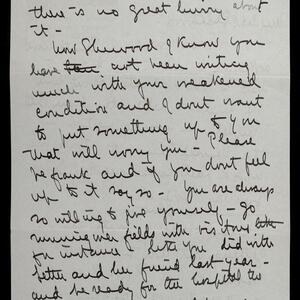 there is no great hurry about
it -
Now Sherwood I know you
have not been writing
much with your weakened
condition and I dont want
to put something up to you
that will worry you - Please
be frank and if you dont feel
up to it say so - You are always
so willing to give yourself - go
running over fields with visitors
for instance - like you did with
and her friend last year -
and be ready for the hospital the